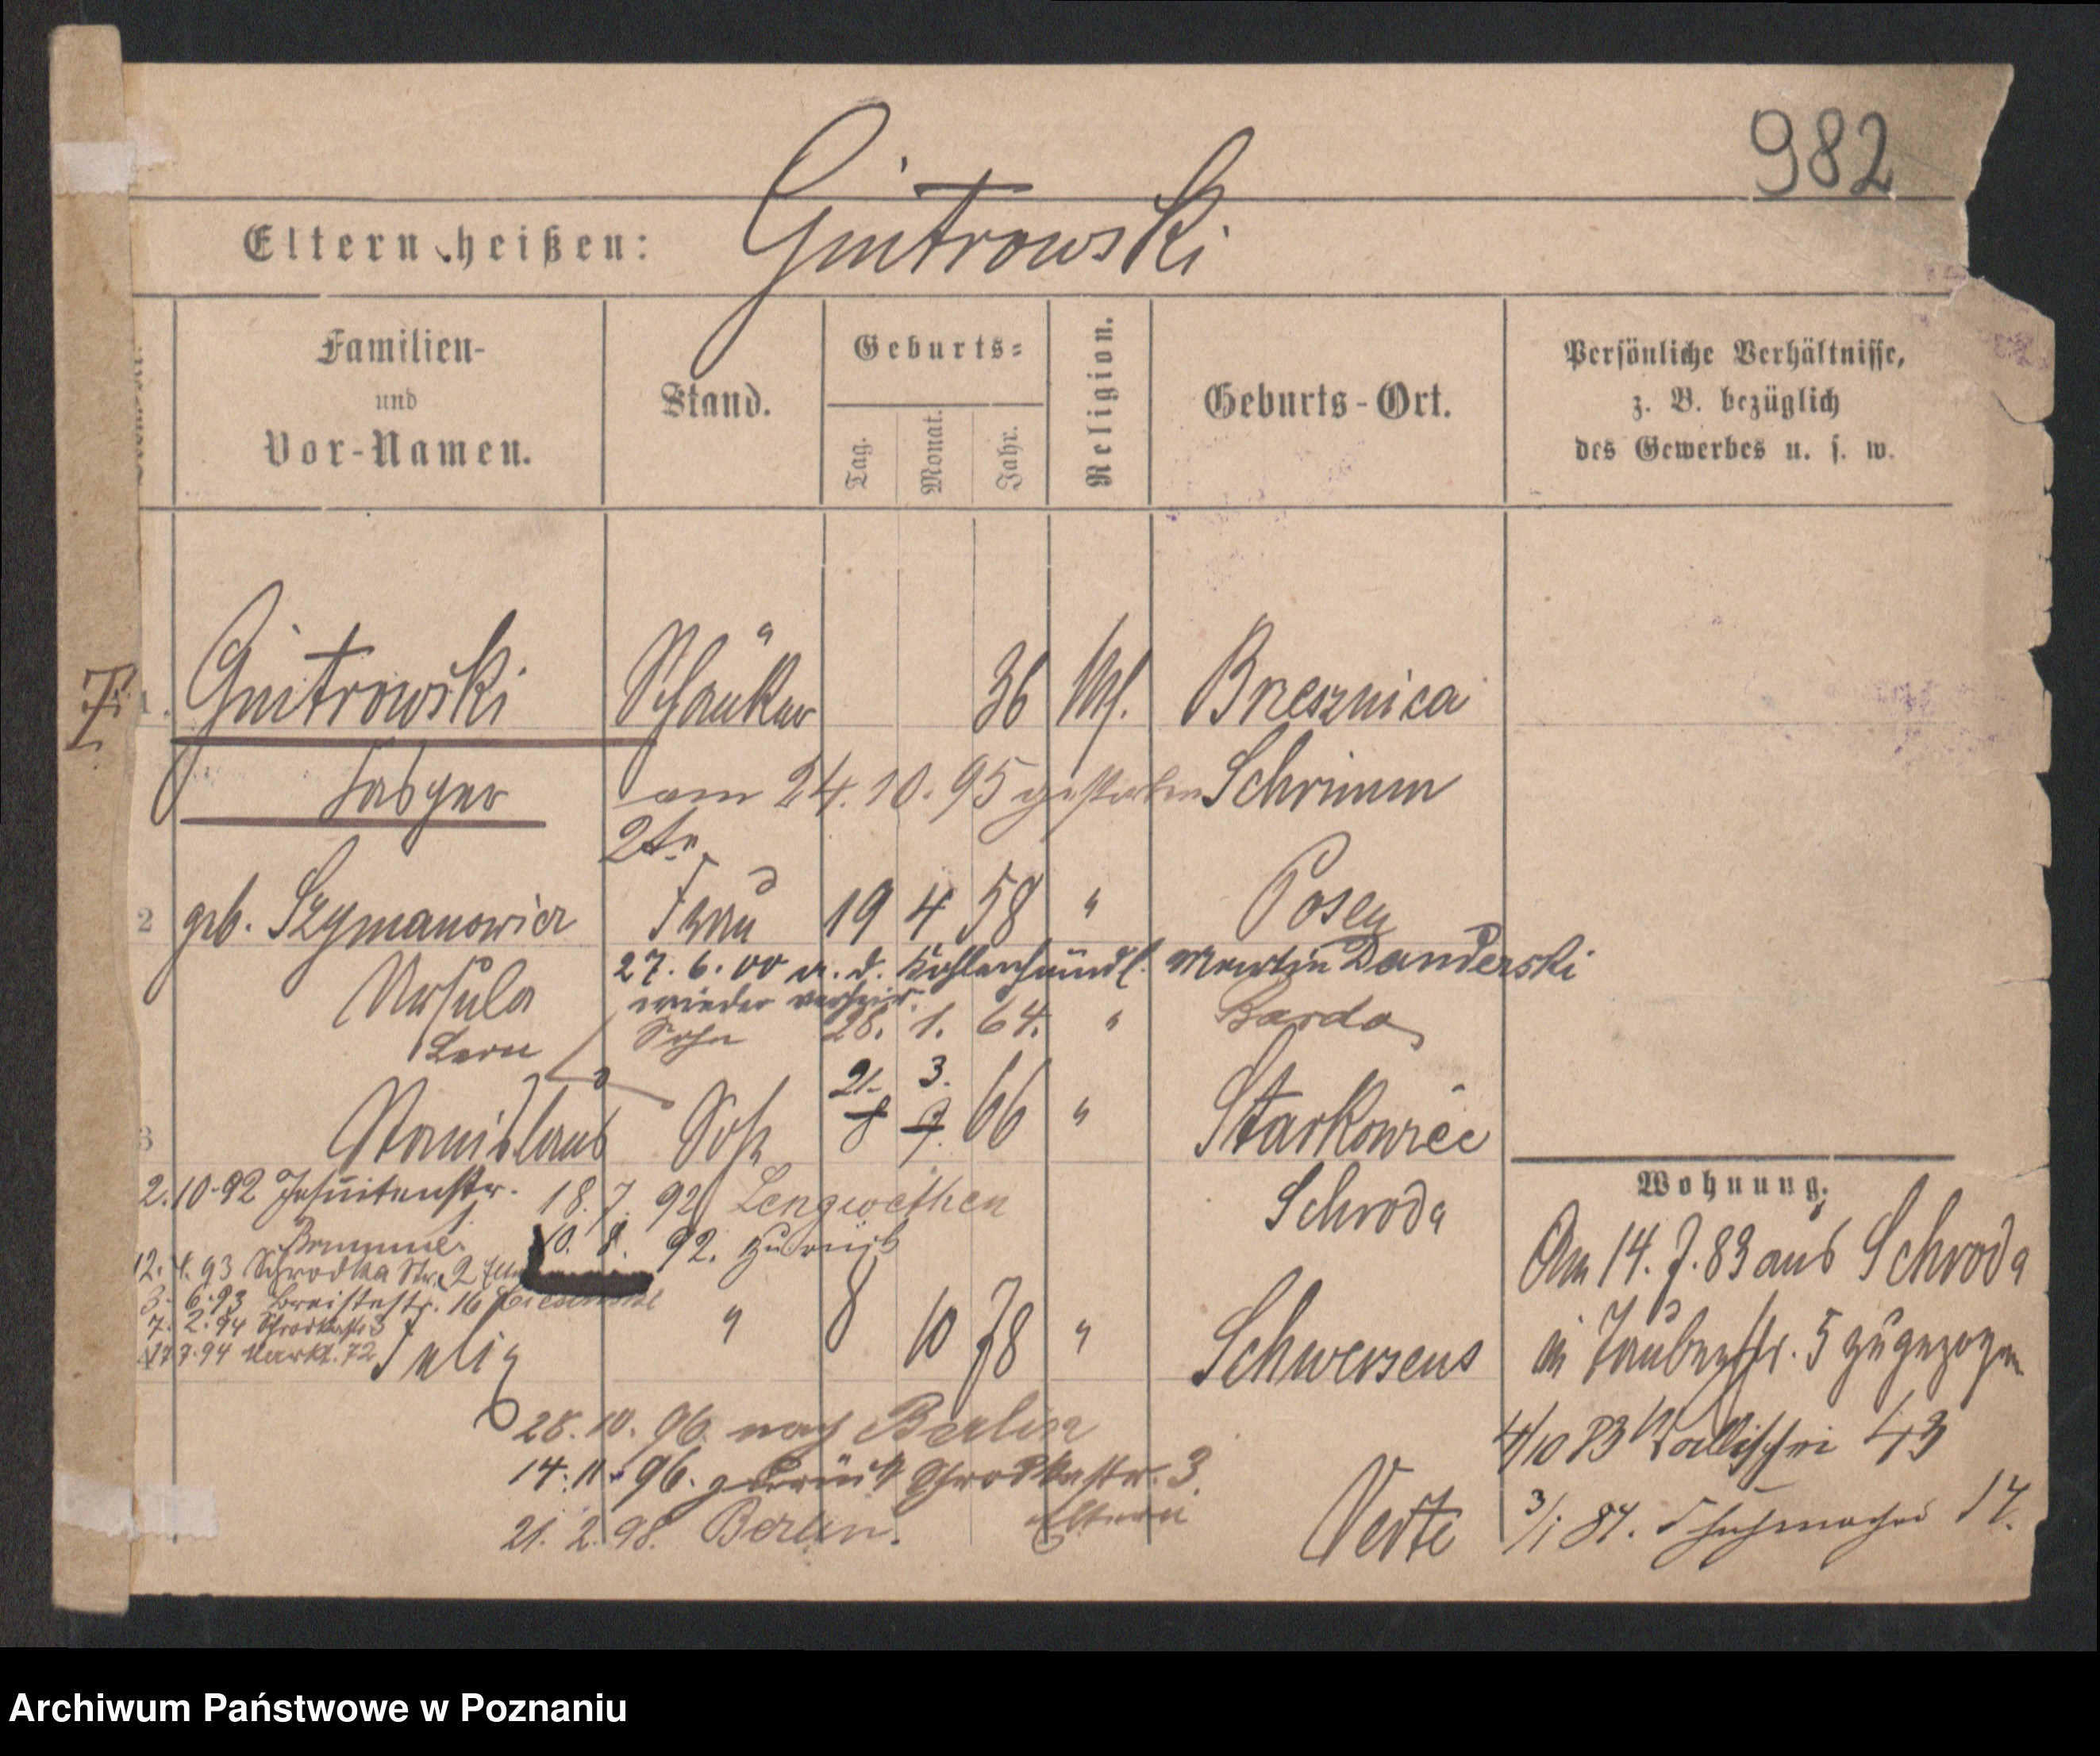 982
Eltern heißen: Gmitrowski
Familien- und Vor-Namen.
Stand.
Geburts-
Tag.
Monat.
Jahr.
Religion.
Geburts-Ort.
Persönliche Verhältnisse,
z. B. bezüglich
des Gewerbes u. s. w.
1. Gmitrowski Schänker 36 Kth. Bresznica
am 24.10.95 gestorben Schrimm
2te
2 geb. Szymanowicz Frau 19 4 58 " Posen
27.6.00 m. d. Kohlenhändl. Martin Danderski
Ursula wieder verheir.
Leon Sohn 28. 1. 64. " Bardo
21. 3.
3 Stanislaus Soh 8 9 66 " Starkowiec
2.10.92 Jesuitenstr. 18. 7. 92 Lengwethen Schroda
10. 8. 92. zurück
12. 4. 93 Schrodka Str. 2
3. 6. 93 Breitestr. 16
7. 2. 94 Schrodkastr 3
17 7. 94 Markt. 72
Julia " 8 10 78 " Schwersens
28. 10. 96. nach Berlin
14. 11. 96. zurück Schrodkastr. 3.
Eltern
21. 2. 98. Berlin.
Wohnung.
Am 14. 7. 83 aus Schroda
in Taubenstr. 5 zugezogen
4/10 83 Wallischei 43
3/1 84. Schuhmacher 17.
Verte
Archiwum Państwowe w Poznaniu